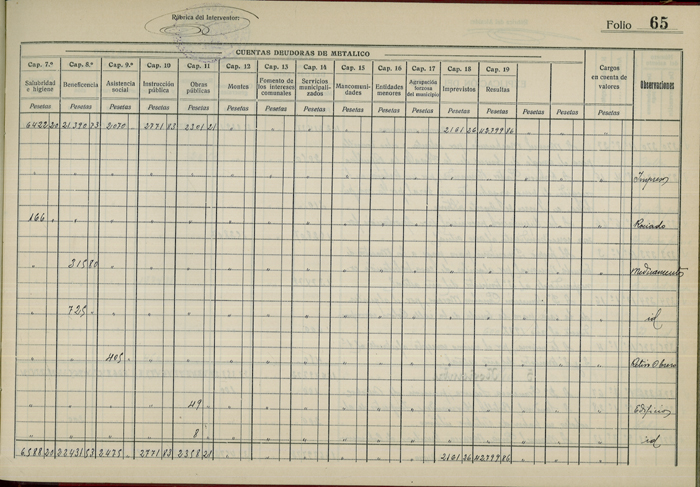 Rúbrica del Interventor:
Folio 65
CUENTAS DEUDORAS DE METALICO
Cap. 7.º Cap. 8.º Cap. 9.º Cap. 10 Cap. 11 Cap. 12 Cap. 13 Cap. 14 Cap. 15 Cap. 16 Cap. 17 Cap. 18 Cap. 19 Cargos en cuenta de valores Observaciones
Salubridad e higiene Beneficencia Asistencia social Instrucción pública Obras públicas Montes Fomento de los intereses comunales Servicios municipali- zados Mancomuni- dades Entidades menores Agrupación forzosa del municipio Imprevistos Resultas
Pesetas Pesetas Pesetas Pesetas Pesetas Pesetas Pesetas Pesetas Pesetas Pesetas Pesetas Pesetas Pesetas Pesetas Pesetas Pesetas
6422 20 21390 73 2070 " 2771 83 2301 21 2161 26 42799 86
Impresos
166 " Rociado
315 80 Medicamentos
725 " id
405 " Retiro Obrero
49 " Edificios
8 " id
6588 20 22431 53 2475 " 2771 83 2358 21 2161 26 42799 86